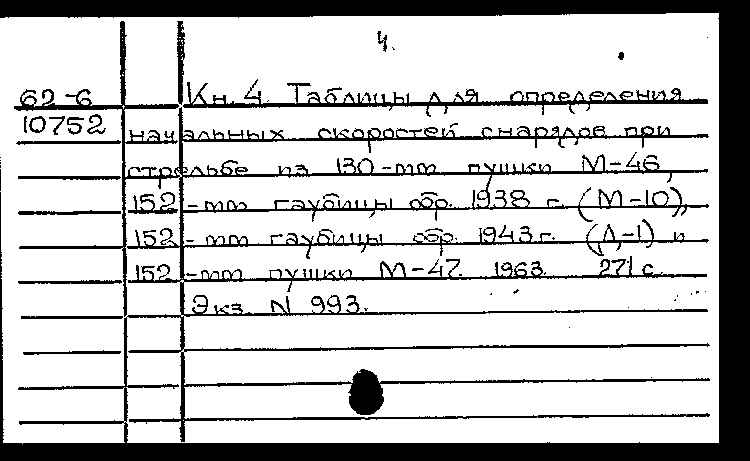 4.
62-6 Кн. 4. Таблицы для определения
10752 начальных скоростей снарядов при
стрельбе из 130-мм пушки М-46,
152-мм гаубицы обр. 1938 г. (М-10),
152-мм гаубицы обр. 1943 г. (Д-1) и
152-мм пушки М-47. 1963. 271 с.
Экз. N 993.